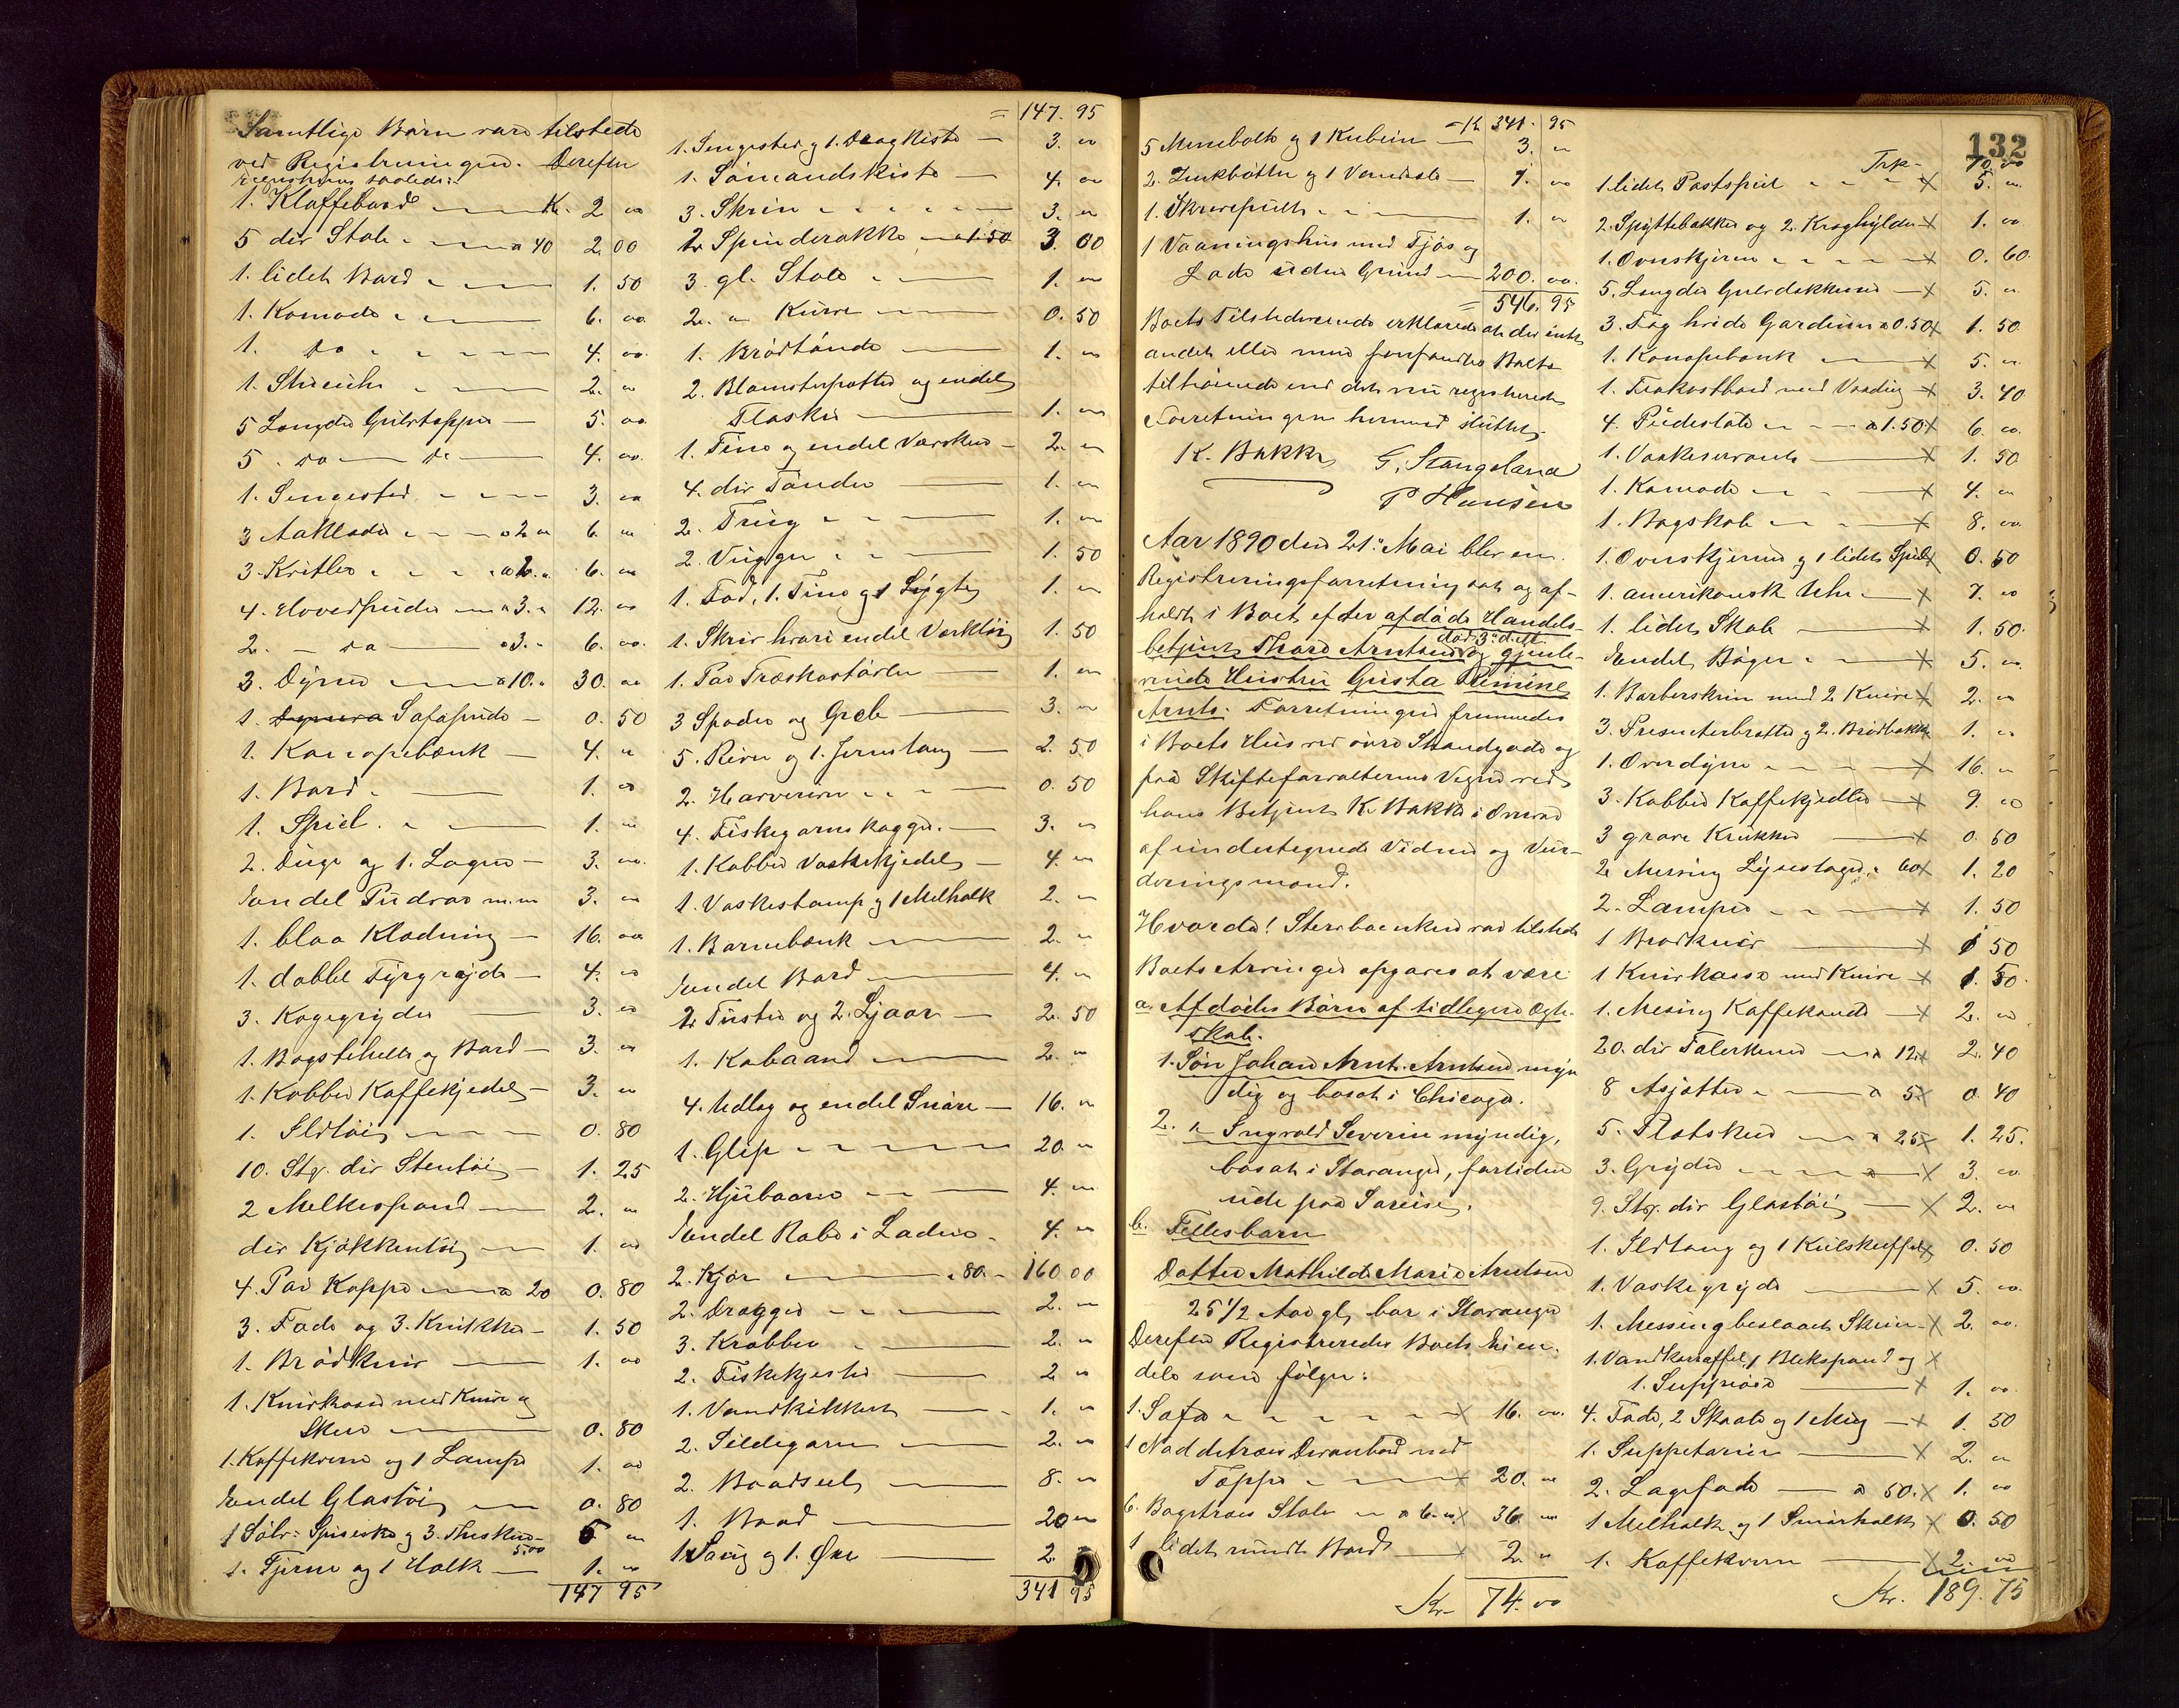 Samtlige Børn vare tilstede
ved Registreringen. Derefter
registreres saaledes:
1. Klaffebord Kr. 2 00
5 dir Stole a 40 2. 00
1. lidet Bord 1. 50
1. Komode 6. 00
1. do 4. 00
1. Stueuhr 2. 00
5 Længder Gulvtæpper 5. 00
5. do 4. 00
1. Sengested 3. 00
3 Aaklæder a 2 6. 00
3. Kvitler a 2. 6. 00
4. Hovedpuder a 3. 12. 00
2. do a 3. 6. 00
3. Dyner a 10. 30. 00
1. Sofapude 0. 50
1. Kanapebænk 4. 00
1. Bord 1. 00
1. Speil 1. 00
2. Duge og 1. Lagen 3. 00
Endel Pudvar m.m 3. 00
1. blaa Klædning 16. 00
1. dobbel Tyrgryde 4. 00
3. Kogegryder 3. 00
1. Bagstehelle og Bord 3. 00
1. Kobber Kaffekjedel 3. 00
1. Ildtøi 0. 80
10. Stk. dir Stentøi 1. 25
2 Melkespand 2. 00
dir Kjøkkentøi 1. 00
4. Par Kopper a 20 0. 80
3. Fade og 3. Krukker 1. 50
1. Brødkniv 1. 00
1. Knivkasse med Knive og
Skeer 0. 80
1. Kaffekvern og 1 Lampe 1. 00
Endel Glastøi 0. 80
1 Sølv: Spiseske og 3. Theskeer 5.00 5 00
1. Tjerne og 1 Holk 1. 00
147 95
= 147. 95
1. Sengested og 1. Dragkiste 3. 00
1. Sømandskiste 4. 00
3. Skrin 3. 00
2. Spinderokke a 1.50 3. 00
3. gl. Stole 1. 00
2. " Kurve 0. 50
1. Brødtønde 1. 00
2. Blomsterpotter og endel
Flasker 1. 00
1. Tine og endel Værsker 2. 00
4. dir Tønder 1. 00
2. Traug 1. 00
2. Vugger 1. 50
1. Fad, 1. Tine og 1 Lygte 1. 00
1. Skrin hvori endel Værktøi 1. 50
1. Par Træskostøvler 1. 00
3 Spader og Greb 3. 00
5. River og 1. Jernstang 2. 50
2. Harveriver 0. 50
4. Fiskegarns kagger 3. 00
1. Kobber Vaskekjedel 4. 00
1. Vaskestamp og 1 Melholk 2. 00
1. Barnebænk 2. 00
Endel Bord 4. 00
2. Tuster og 2. Ljaar 2. 50
1. Kabaand 2. 00
4. Udlag og endel Snøre 16. 00
1. Glip 20. 00
2. Hjulbaarer 4. 00
Endel Rabe i Laden 4. 00
2. Kjør a 80. 160 00
2. Drægger 2. 00
3. Krabber 2. 00
2. Fiskekjester 2 00
1. Vandkikkert 1. 00
2. Sildegarn 2. 00
2. Baadseil 8. 00
1. Baad 20 00
1 Saug og 1. Øxe 2
341 95
132
= Kr 341. 95
5 Minebolte og 1 Kubein 3. 00
2. Zinkbøtter og 1 Vandsele 1. 00
1. Skrivepult 1. 00
1 Vaaningshus med Fjøs og
Lade uden Grund 200. 00.
= 546. 95
Boets Tilstedeværende erklærede at der intet
andet eller mere forefandtes Boet
tilhørende end det nu registrerede
Forretningen hermed sluttet.
K. Bakke G. Stangeland
P Hansen
Aar 1890 den 21. Mai blev en
Registreringsforretning sat og af-
holdt i Boet efter afdøde Handels-
betjent Thore Arntsen død 3. ds. og gjenle-
vende Hustru Gusta
Arnts. Forretningen fremmedes
i Boets Hus ved øvre Strandgade og
paa Skifteforvalterens Vegne ved
hans Betjent K. Bakke i Overvær
af undertegnede Vidner og Vur-
deringsmænd.
Hvorda! Stervboenken var tilstede
Boets Arvinger opgaves at være
a. Afdødes Børn af tidligere Ægte-
skab.
1. Søn Johan Arnt. Arntsen myn
dig og bosat i Chicago.
2. " Ingvald Severin myndig,
bosat i Stavanger, fortiden
ude paa Søreise.
b. Fellesbarn
Datter Mathilde Marie Arntsen
25 1/2 Aar gl, bor i Stavanger
Derefter Registreredes Boets Eien-
dele som følger:
1. Sofa X 16. 00.
1 Nøddetræes Divanbord med
Tæppe X 20. 00
6. Bøgetræes Stole a 6. X 36. 00
1 lidet rundt Bord X 2. 00
Kr. 74. 00
Trp. 74. 00
1 lidet Postspeil X 5. 00
2. Spyttebakker og 2. Kroghylder X 1. 00
1. Ovnskjerm X 0. 60.
5. Længder Gulvdækkener X 5. 00
3. Fag hvide Gardiner a 0.50 X 1. 50
1. Kanapebænk X 5. 00
1. Frokostbord med Vaadug X 3. 40
4. Pudestole a 1.50 X 6. 00
1. Vaskeservante X 1. 50
1. Komode X 4. 00
1. Bogskab X 8. 00
1. Ovnskjerm og 1 lidet Speil X 0. 50
1. amerikansk Uhr X 7. 00
1. lidet Skab 1. 50.
Endel Bøger X 5. 00
1. Barberskrin med 2 Knive X 2. 00
3. Presenterbretter og 2. Brødbakker 1. 00
1. Overdyne X 16. 00
3. Kobber Kaffekjedler X 9. 00
3 graae Krukker X 0. 50
2. Messing Lysestager a 60 X 1. 20
2. Lamper X 1. 50
1 Brødkniv X 50
1 Knivkasse med Knive X 1. 50.
1. Messing Kaffekande X 2. 00
20. dir Talerkener a 12 X 2. 40
8 Asjetter a 5 X 0. 40
5. Flatskeer a 25 X 1. 25.
3. Gryder X 3. 00
9. Stk. dir Glastøi X 2. 00
1. Ildtang og 1 Kulskuffel X 0. 50
1. Vaskegryde X 5. 00
1. Messingbeslaaet Skrin X 2. 00.
1. Vandkaraffel, 1 Blikspand og X
1. Suppeøse X 1. 00.
4. Fade, 2 Skaale og 1 Mug X 1. 50
1. Suppeterrin X 2. 00
2. Lagefade a 50. X 1. 00
1 Melholk og 1 Smørholk X 0. 50
1. Kaffekvern X 2. 00
Kr. 189. 75